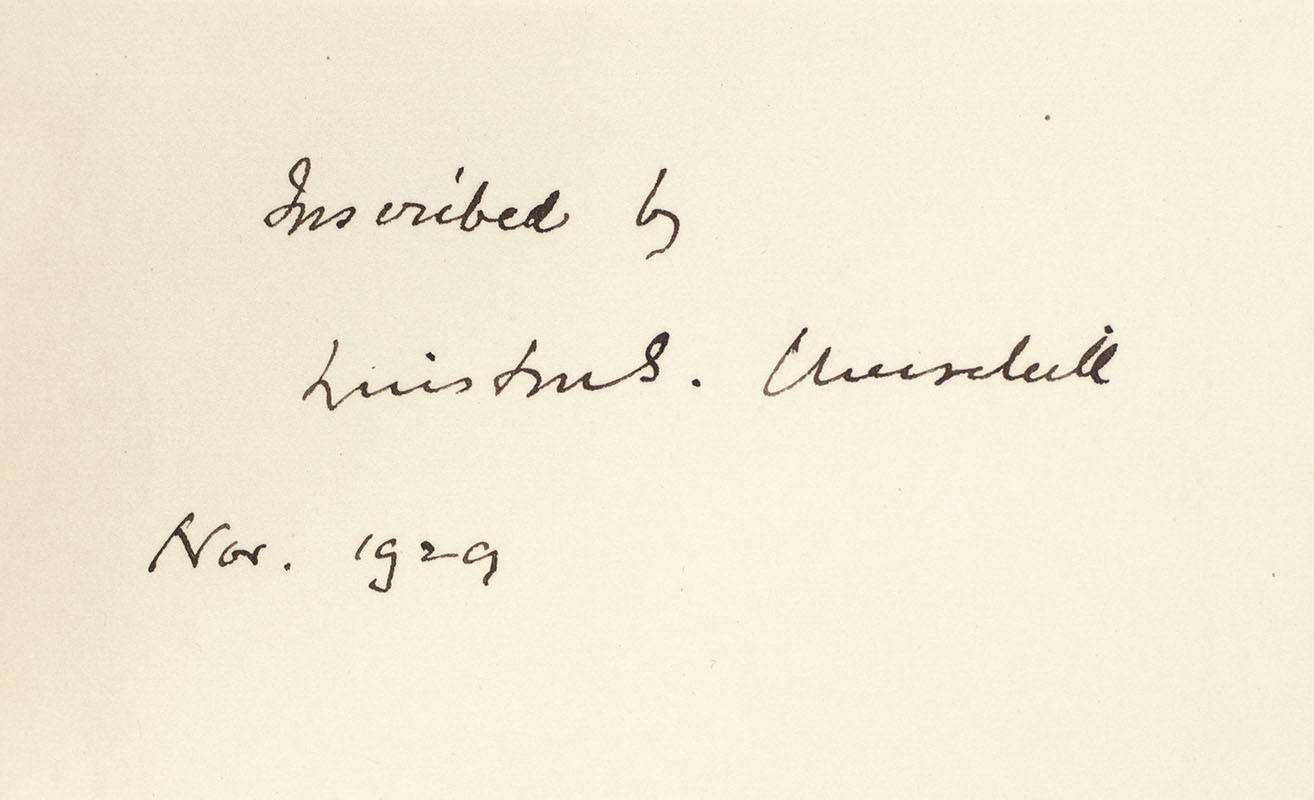 Inscribed by
Winston S. Churchill
Nov. 1929